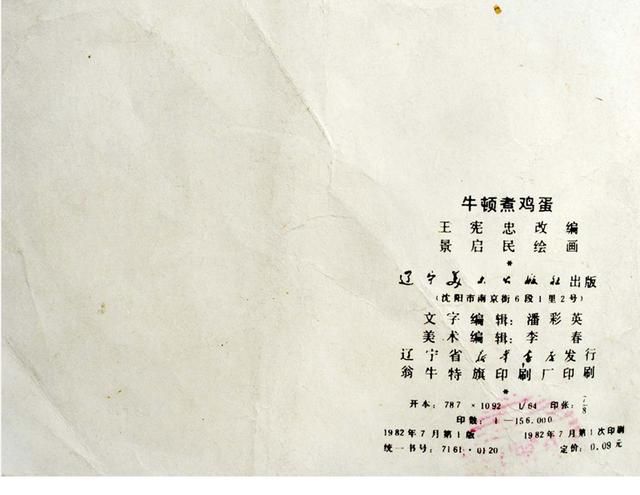 牛顿煮鸡蛋
王宪忠改编
景启民绘画
*
辽宁美术出版社出版
(沈阳市南京街6段1里2号)
文字编辑:潘彩英
美术编辑:李 春
辽宁省新华书店发行
翁牛特旗印刷厂印刷
*
开本:787×1092 1/64 印张:7/8
印数:1—156.000
1982年7月第1版 1982年7月第1次印刷
统一书号:7161·0120 定价:0.09元